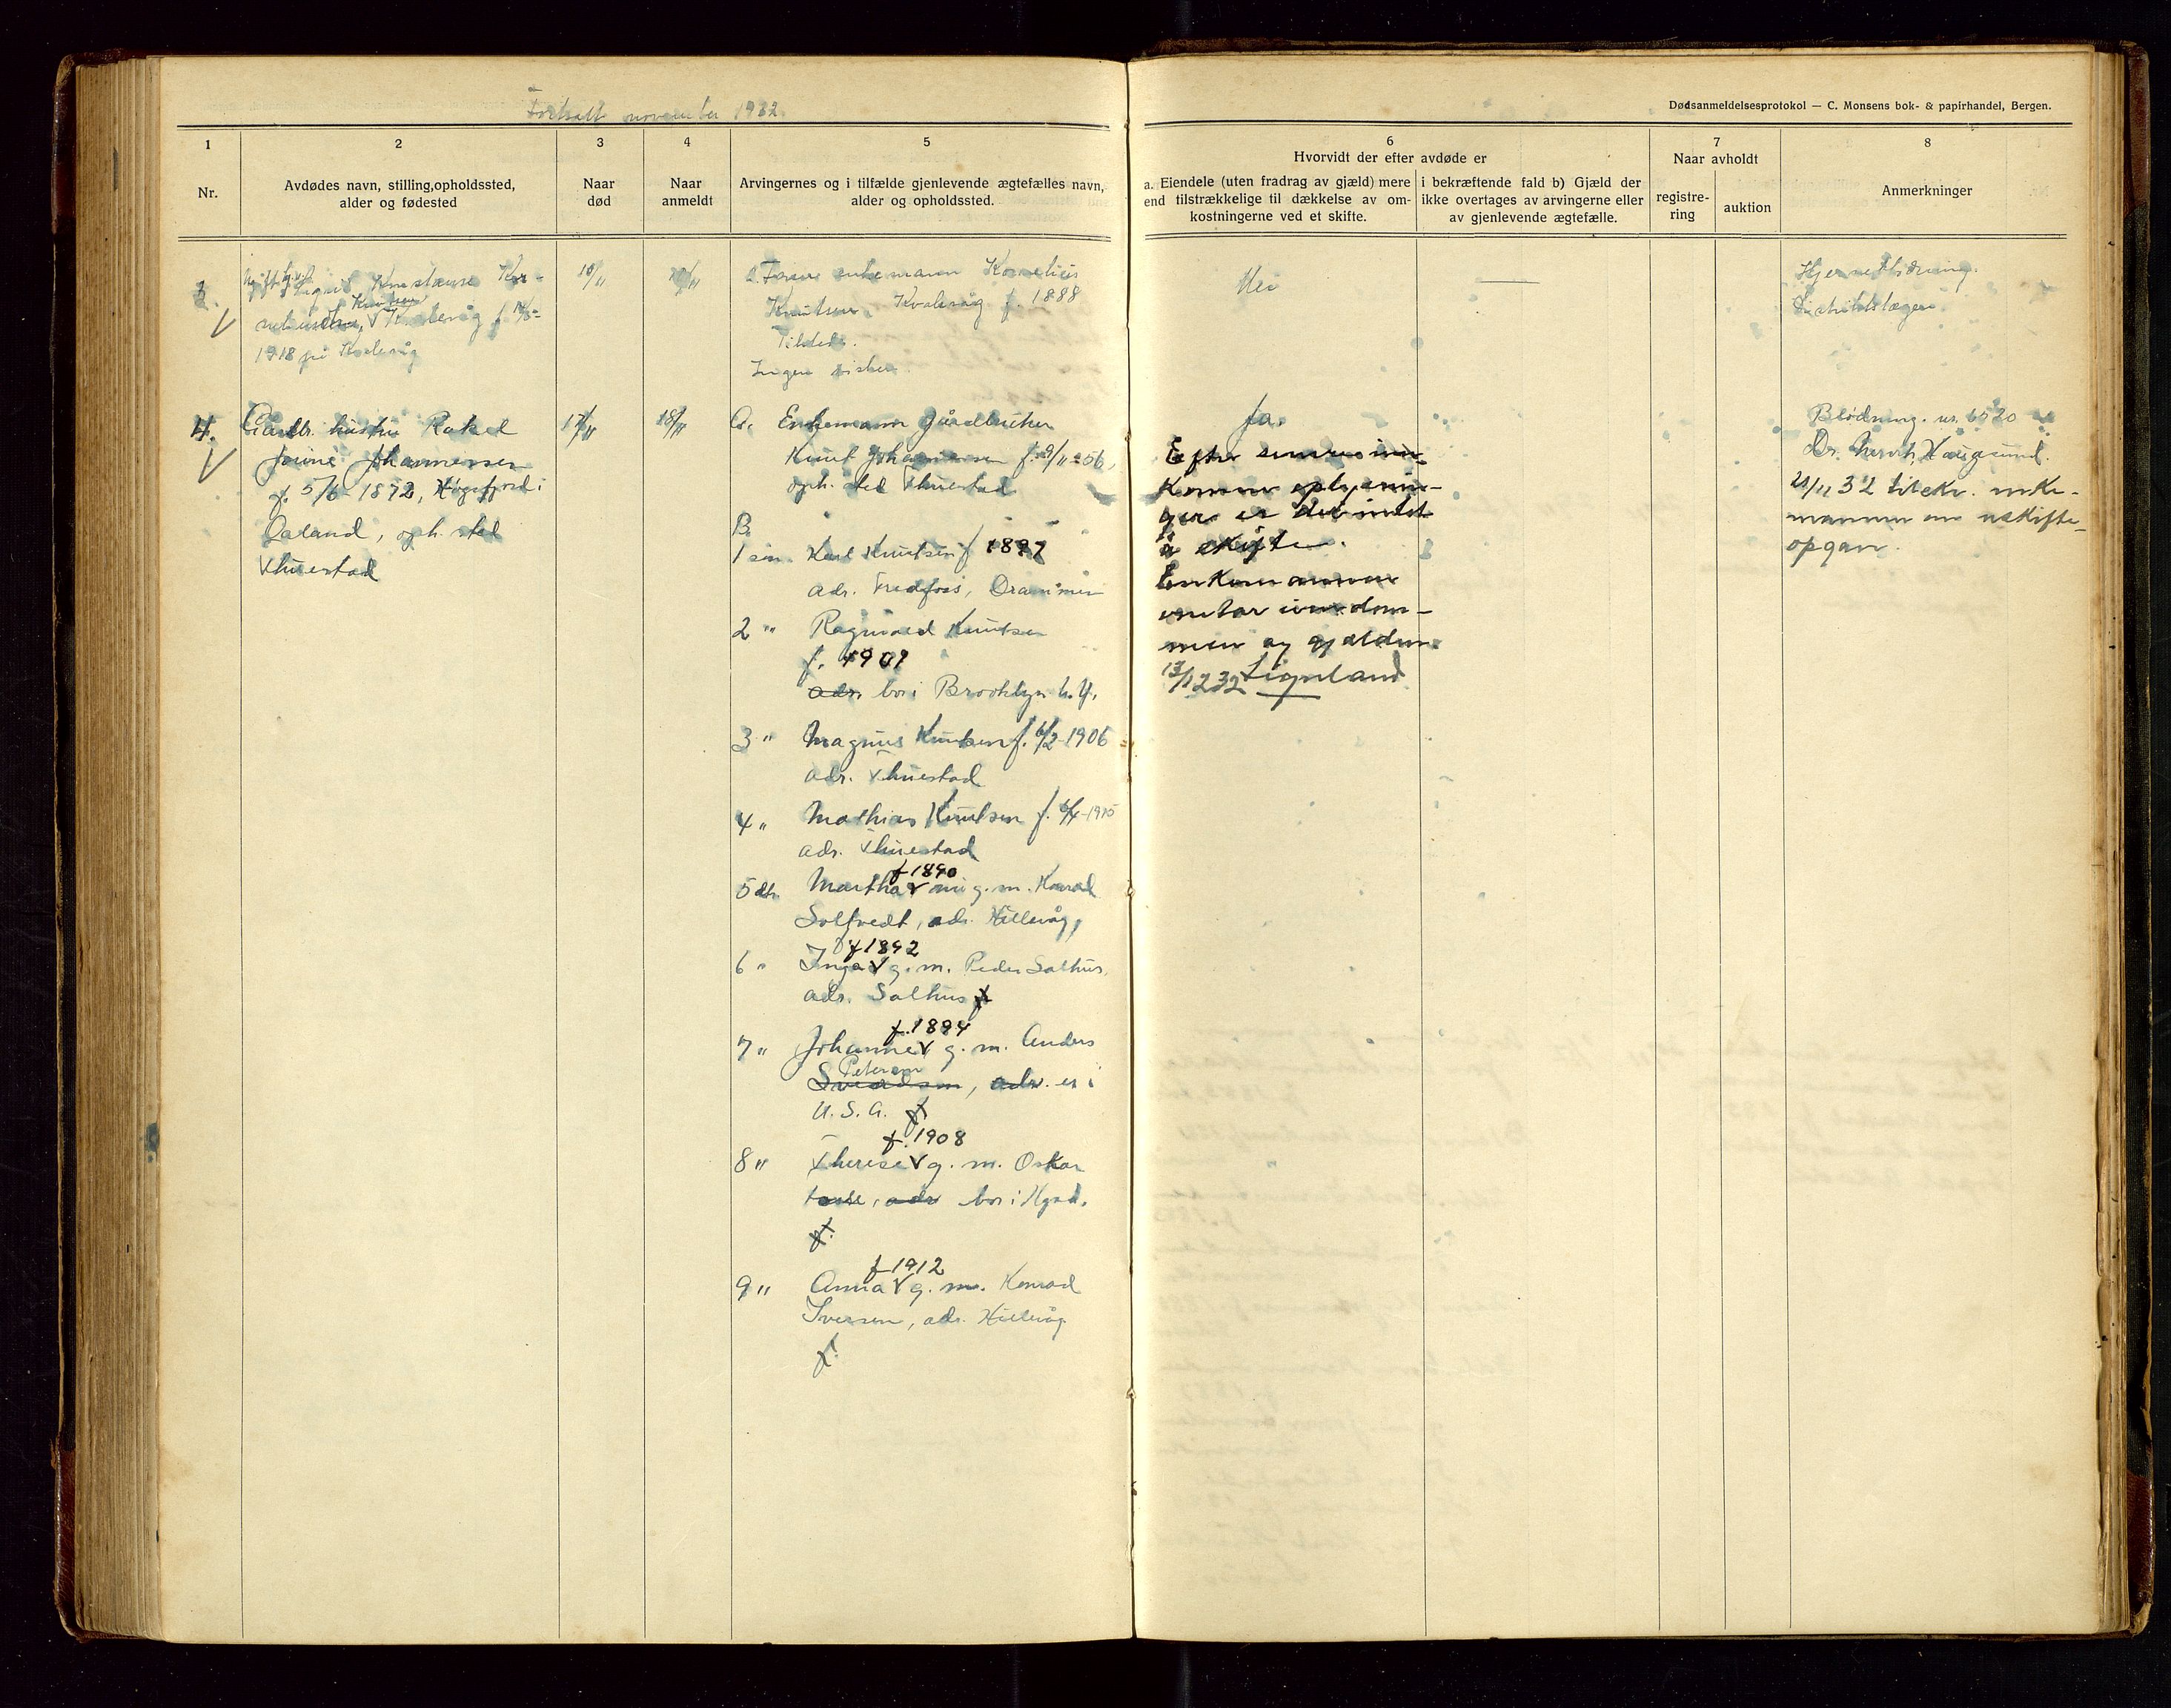 Fortsatt november 1932.
Dødsanmeldelsesprotokol — C. Monsens bok- & papirhandel, Bergen.
1
Nr.
2
Avdødes navn, stilling, opholdssted,
alder og fødested
3
Naar
død
4
Naar
anmeldt
5
Arvingernes og i tilfælde gjenlevende ægtefælles navn,
alder og opholdssted.
6
Hvorvidt der efter avdøde er
a. Eiendele (uten fradrag av gjæld) mere
end tilstrækkelige til dækkelse av om-
kostningerne ved et skifte.
i bekræftende fald b) Gjæld der
ikke overtages av arvingerne eller
av gjenlevende ægtefælle.
7
Naar avholdt
registre-
ring
auktion
8
Anmerkninger
3.
Sigrid Konstanse Kor-
Knutsen
Kvalevåg f.
1918 på Kvalevåg
10/11
Faren enkemann Kornelius
Knutsen, Kvalevåg f. 1888
Tilstede.
Ingen
Nei
Distriktslægen
4.
Gårdbr. hustru Rakel
Johannessen
f. 5/6-1872, Høgsfjord i
opb. sted
Thuestad
17/11
18/11
A. Enkemann gårdbruker
Knut Johannessen f.
oph. sted Thuestad
B.
1 søn Karl Knutsen f 1897
adr. Drammen
2 " Ragnvald Knutsen
f. 1901
adr. bor i Brooklyn N.Y.
3 " Magnus Knutsen f. 6/2-1906
adr. Thuestad
4 " Mathias Knutsen f.
adr. Thuestad
f 1890
5 dtr. Martha g. m. Konrad
Solfvedt, adr. Hillevåg,
f 1892
6 " Inga g. m. Peder Salhus,
adr. Salhus f
f. 1894
7 " Johanne g. m. Anders
Petersen
adr. er i
U. S. A. f
f. 1908
8 " Therese g. m. Oskar
adr bor i Hgsd.
f.
f 1912
9 " Anna g. m. Konrad
Iversen, adr. Hillevåg
f.
Ja.
Efter senere inn-
komne oplysnin-
ger er det intet
å skifte.
Enkemannen
overtar eiendom-
men og gjelden.
13/12 32 Ligaland
Blødning. nr. 6520
Dr. Haugesund.
21/11 32 tilskr. enke-
mannen om uskifte-
opgave.